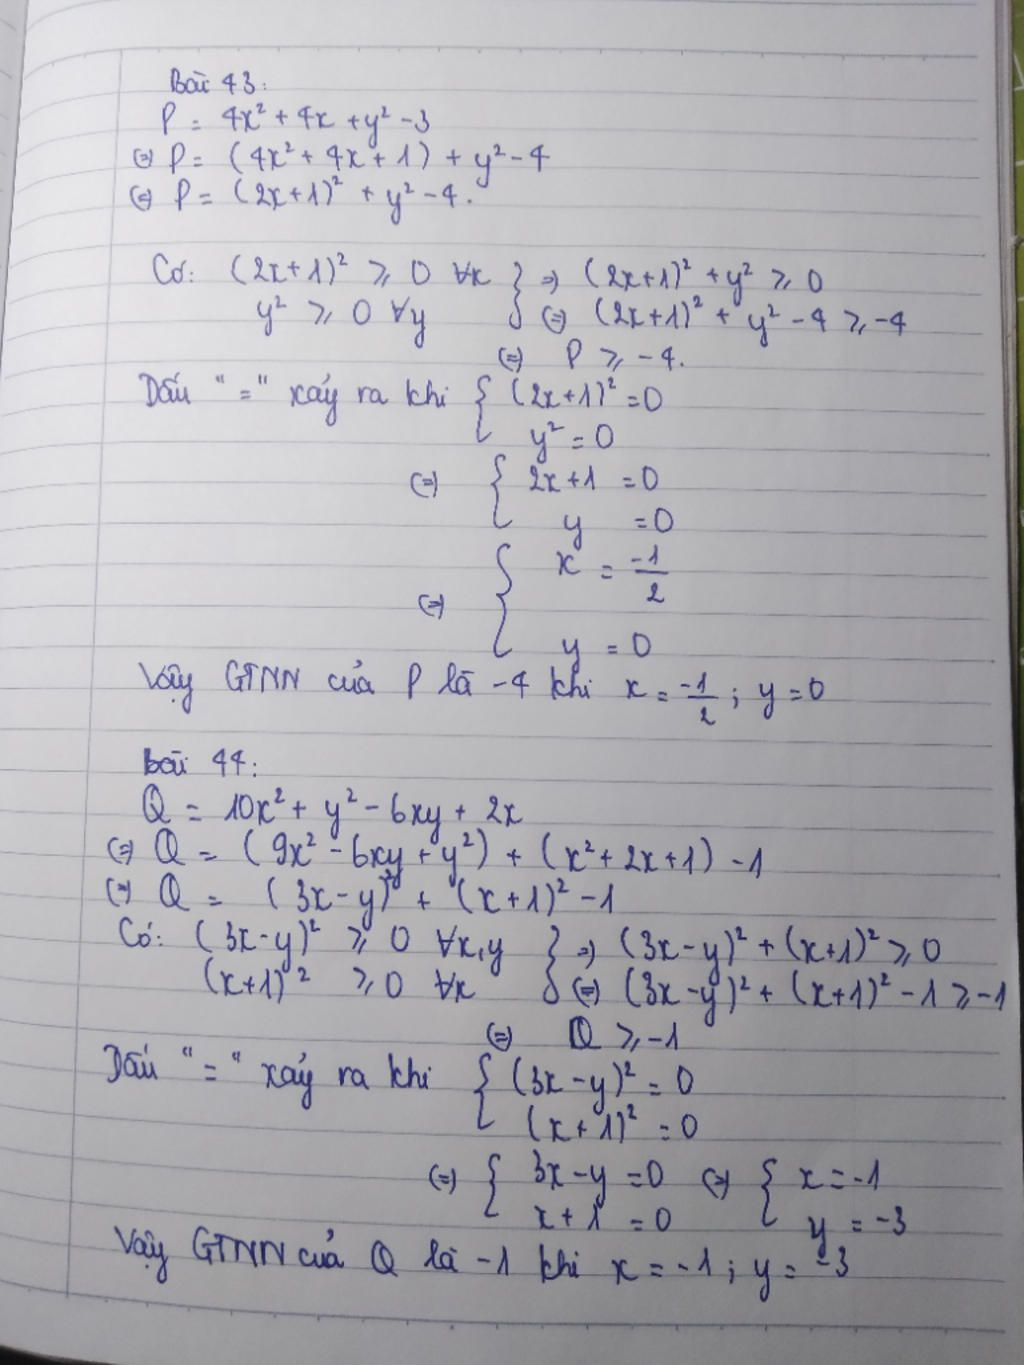 Bài 43:
P = 4x² + 4x + y² - 3
⇔ P = (4x² + 4x + 1) + y² - 4
⇔ P = (2x+1)² + y² - 4.
Có: (2x+1)² ≥ 0 ∀x } ⇒ (2x+1)² + y² ≥ 0
y² ≥ 0 ∀y } ⇔ (2x+1)² + y² - 4 ≥ -4
⇔ P ≥ -4.
Dấu "=" xảy ra khi { (2x+1)² = 0
y² = 0
⇔ { 2x+1 = 0
y = 0
⇔ { x = -1/2
y = 0
Vậy GTNN của P là -4 khi x = -1/2 ; y = 0
Bài 44:
Q = 10x² + y² - 6xy + 2x
⇔ Q = (9x² - 6xy + y²) + (x² + 2x + 1) - 1
⇔ Q = (3x - y)² + (x+1)² - 1
Có: (3x-y)² ≥ 0 ∀x,y } ⇒ (3x-y)² + (x+1)² ≥ 0
(x+1)² ≥ 0 ∀x } ⇔ (3x-y)² + (x+1)² - 1 ≥ -1
⇔ Q ≥ -1
Dấu "=" xảy ra khi { (3x-y)² = 0
(x+1)² = 0
⇔ { 3x-y = 0 ⇔ { x = -1
x+1 = 0 y = -3
Vậy GTNN của Q là -1 khi x = -1 ; y = -3